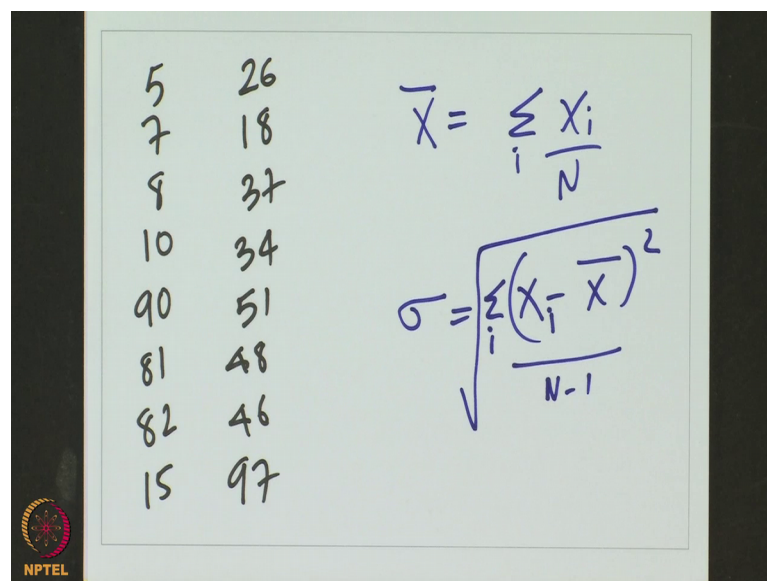 5 26
7 18
8 37
10 34
90 51
81 48
82 46
15 97
X̄ = Σᵢ Xᵢ/N
σ = √(Σᵢ(Xᵢ - X̄)²/(N-1))
NPTEL